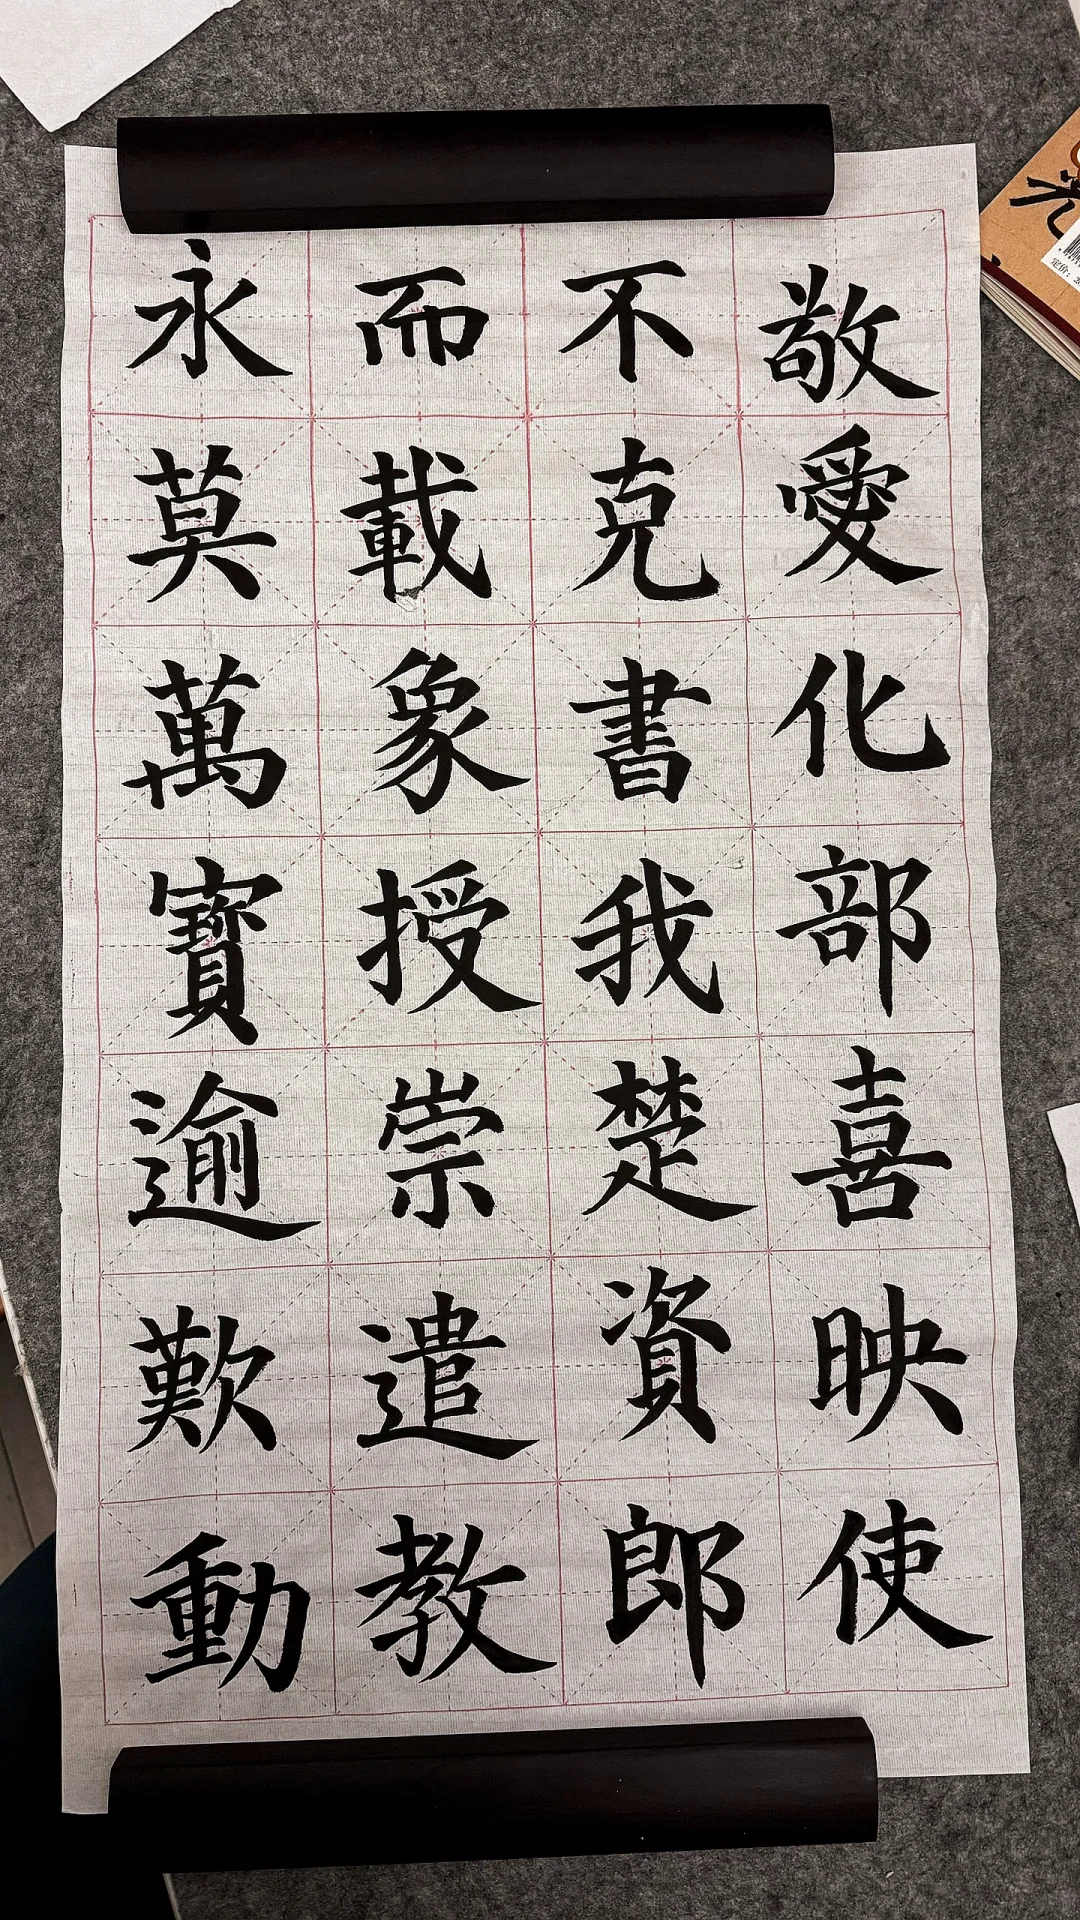 敬愛化部喜映使
不克書我楚資郎
而載象授崇遣教
永莫萬寶逾歎動
定价: